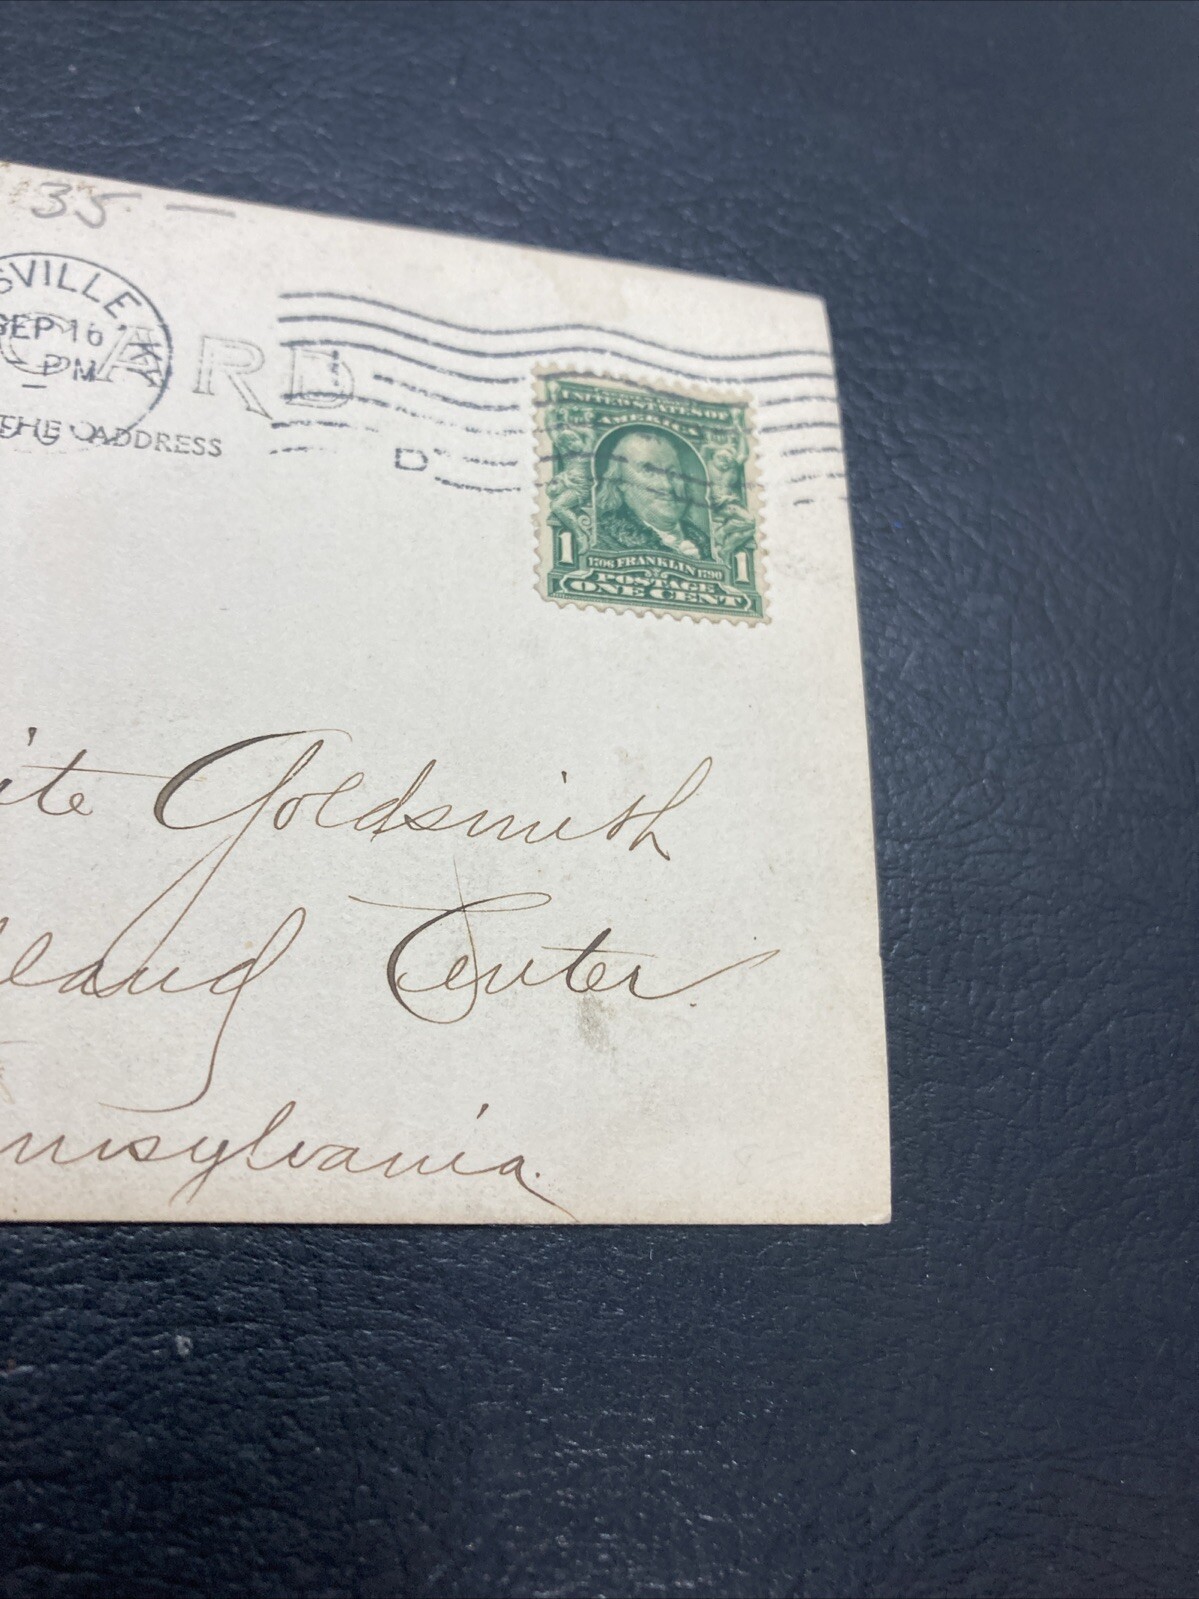 35. —
SVILLE KY
SEP 16
PM
CARD
THE ADDRESS
D
UNITED STATES OF
AMERICA
1 1
1706 FRANKLIN 1790
POSTAGE
ONE CENT
ite Goldsmith
land Center.
nnsylvania.